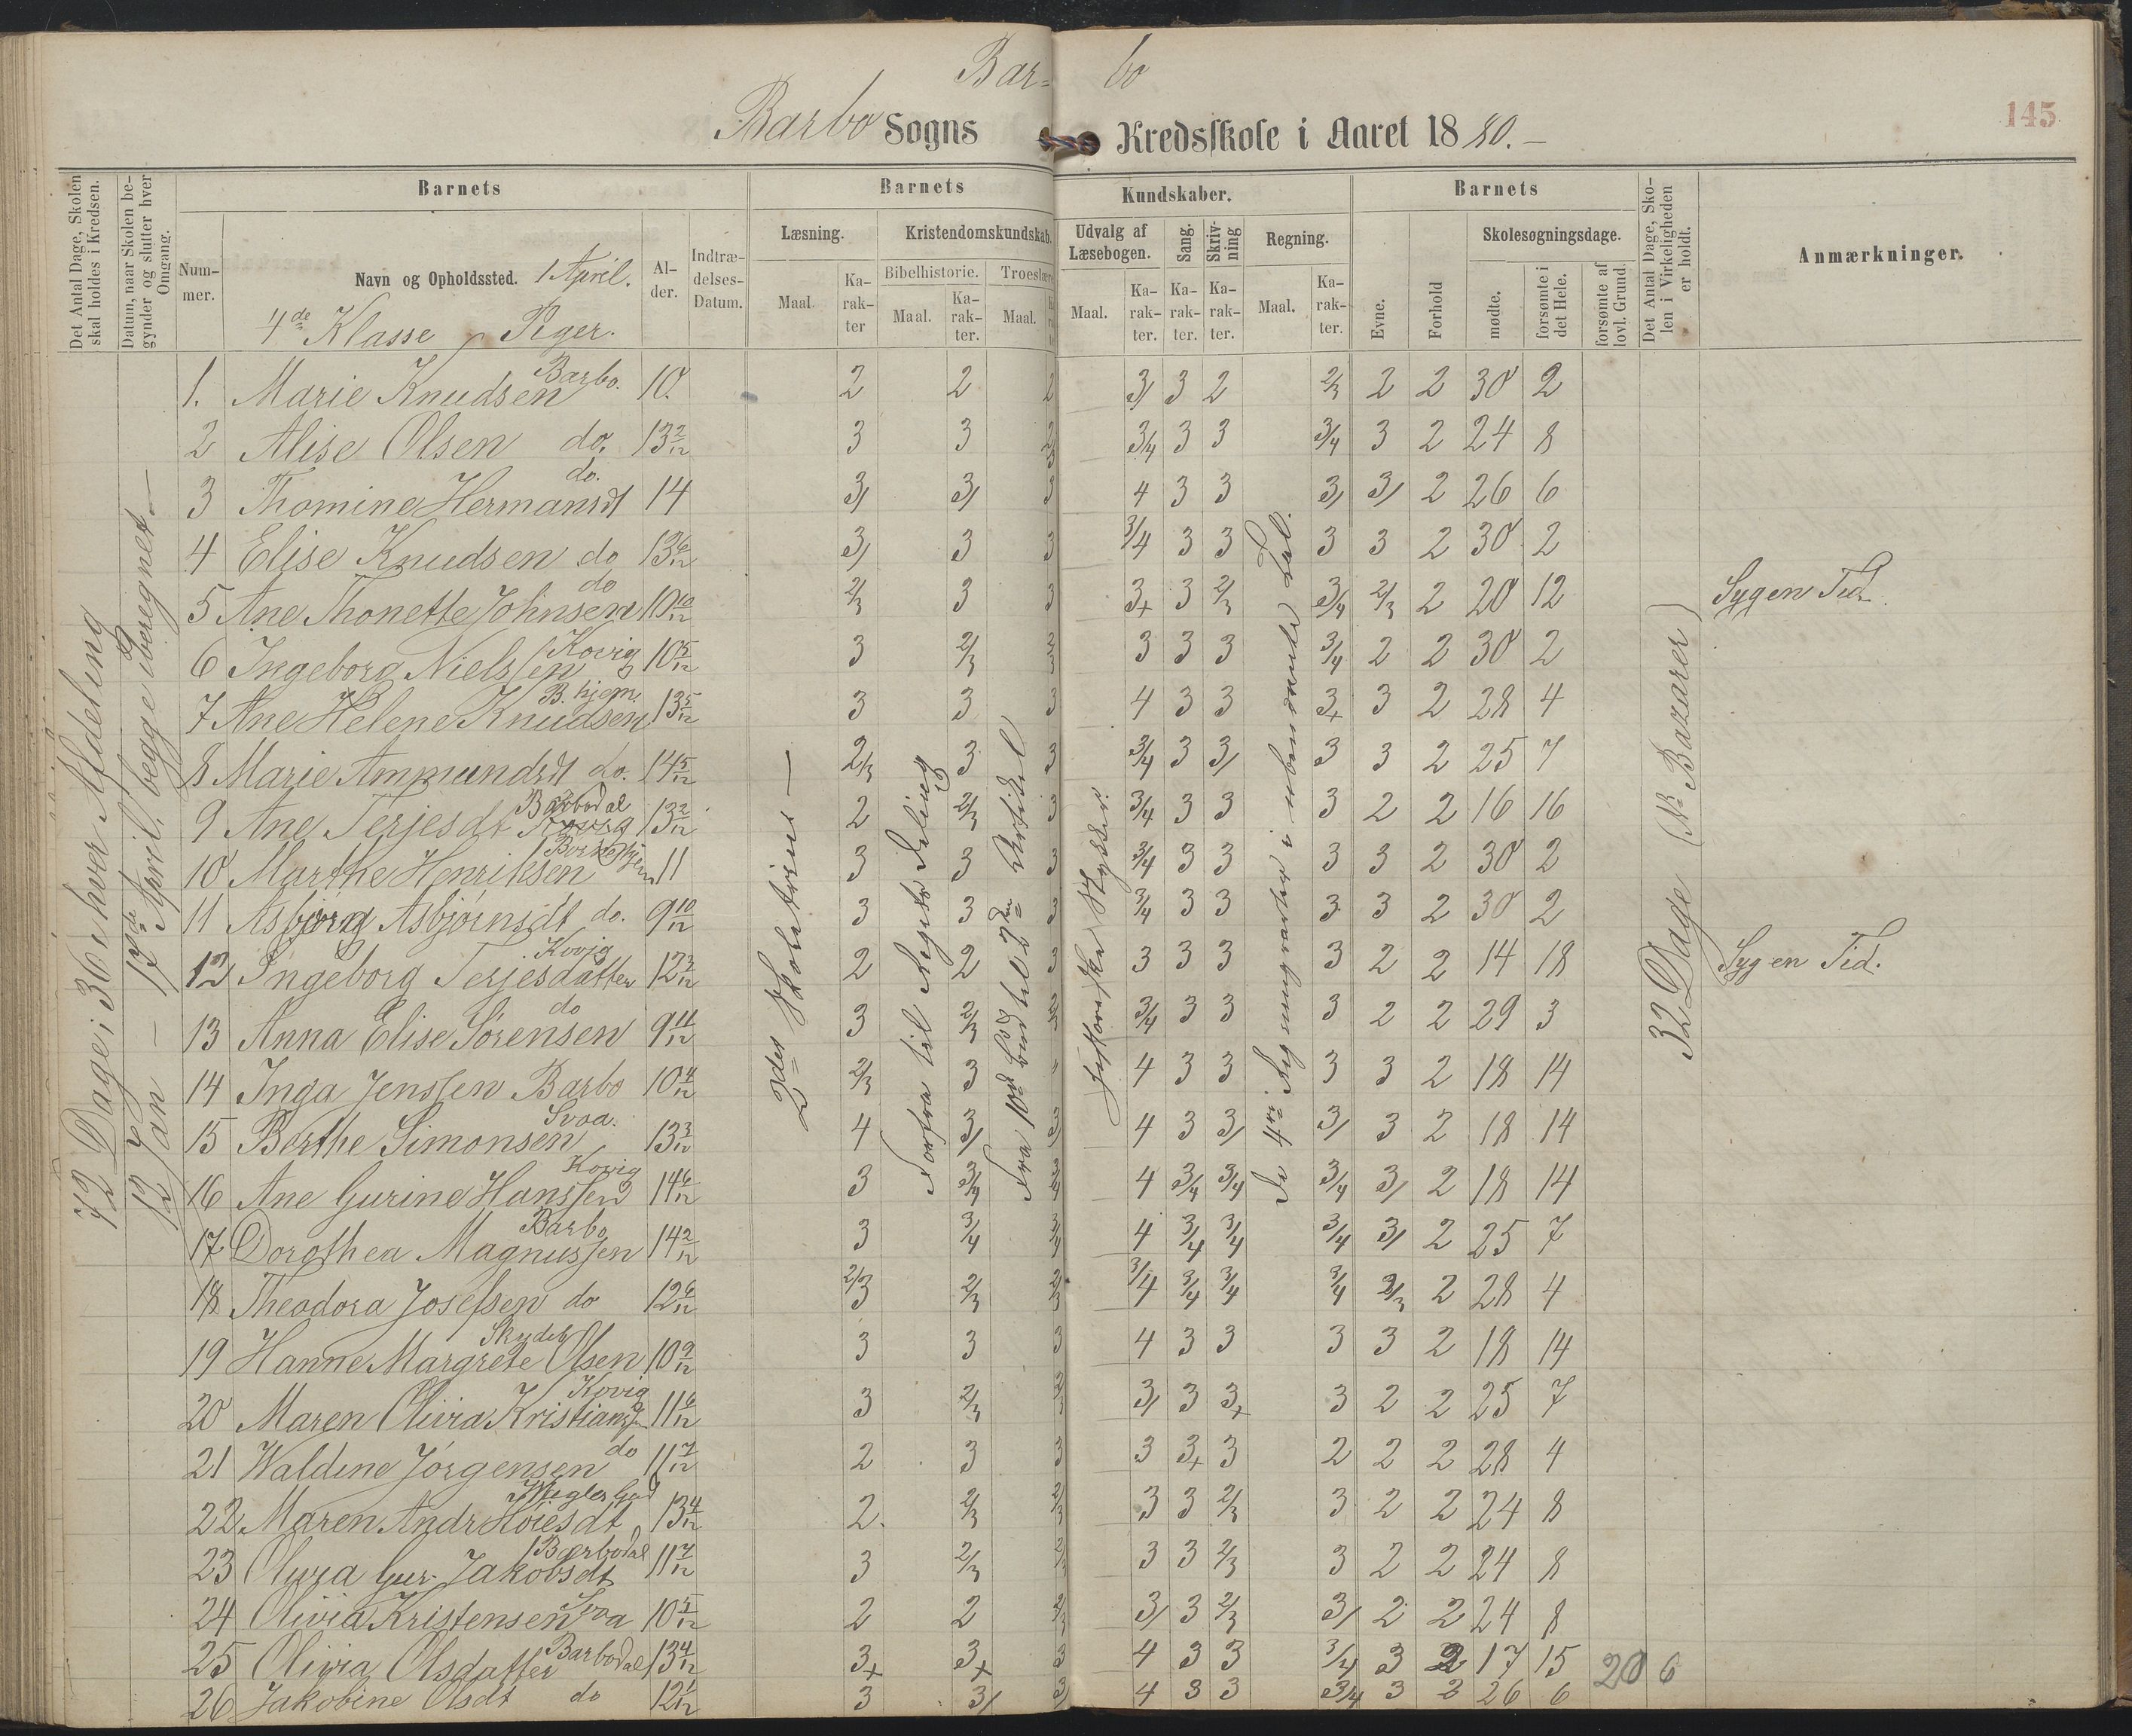 Bar= bo
145
Barbo Sogns Kredsskole i Aaret 1880.—
Det Antal Dage, Skolen skal holdes i Kredsen.
Datum, naar Skolen begynder og slutter hver Omgang.
Barnets
Barnets
Kundskaber.
Barnets
Det Antal Dage, Skolen i Virkeligheden er holdt.
Anmærkninger.
Nummer.
Navn og Opholdssted. 1 April.
4de Klasse Piger.
Alder.
Indtrædelses-Datum.
Læsning.
Kristendomskundskab.
Udvalg af Læsebogen.
Sang.
Skrivning
Regning.
Skolesøgningsdage.
Bibelhistorie.
Troeslære
Maal. Karakter
Maal. Karakter.
Maal.
Maal. Karakter. Karakter. Karakter.
Maal. Karakter.
Evne.
Forhold
mødte.
forsømte i det Hele.
forsømte af lovl. Grund.
72 Dage i 36 i hver Afdeling
12 Jan — 17de April, begge iberegnet —
2det Skoletrin —
Forfra til Regets Deling
Fra 10de Bud til 2den Artikel
historiske Stykker.
De 4re Regningsarter i ubenævnte Tal.
32 Dage (N. Bazarer)
1. Marie Knudsen Barbo. 10. 2 2 2 3/ 3 2 2/3 2 2 30 2
2 Alise Olsen do. 13 2/12 3 3 2/3 3/4 3 3 3/4 3 2 24 8
3 Thomine Hermansdt do. 14 3/ 3/ 3 4 3 3 3/ 3/ 2 26 6
4 Elise Knudsen do 13 6/12 3/ 3 3 3/4 3 3 3 3 2 30 2
5 Ane Thonette Johnsen do 10 10/12 2/3 3 3 3+ 3 2/3 3/4 2/3 2 20 12 Syg en Tid.
6 Ingeborg Nielssen Kovig 10 5/12 3 2/3 2/3 3 3 3 3/4 2 2 30 2
7 Ane Helene Knudsen B. hjem. 13 5/12 3 3 3 4 3 3 3+ 3 2 28 4
8 Marie Ammundsdt do. 14 5/12 2/3 3 3 3/4 3 3/ 3 3 2 25 7
9 Ane Terjesdt Barbodal 13 2/12 2 2/3 3 3/4 3 3 3 2 2 16 16
10 Marthe Henriksen 11 3 3 3 3/4 3 3 3 3 2 30 2
11 Asbjørg Asbjørnsdt do. 9 10/12 3 3 3 3/4 3 3 3 3 2 30 2
12 Ingeborg Terjesdatter Kovig 12 3/12 2 2 3 3 3 3 3 2 2 14 18 Syg en Tid.
13 Anna Elise Sørensen do 9 11/12 3 2/3 2/3 3/4 3 3 3 2 2 29 3
14 Inga Jenssen Barbo 10 4/12 2/3 3 " 4 3 3 3 3 2 18 14
15 Berthe Simonsen Svoa. 13 3/12 4 3/ 3/ 4 3 3/ 3/ 3 2 18 14
16 Ane Gurine Hanssen Kovig 14 6/12 3 3/4 3/4 4 3/4 3/4 3/4 3/ 2 18 14
17 Dorothea Magnussen Barbo 14 2/12 3 3/4 3/4 4 3/4 3/4 3/4 3/ 2 25 7
18 Theodora Josefsen do 12 6/12 2/3 2/3 2/3 3/4 3/4 3/4 3/4 2/3 2 28 4
19 Hanne Margrete Olsen 10 9/12 3 3 3 4 3 3 3 3 2 18 14
20 Maren Olivia Kristians Kovig 11 6/12 3 2/3 2/3 3/ 3 3+ 3 2 2 25 7
21 Waldine Jørgensen do 11 7/12 2 3 3 3 3+ 3 2 2 2 28 4
22 Maren Andr Hoiesdt 13 4/12 2. 2/3 2/3 3 3 2/3 3 2 2 24 8
23 Gur. Jakobsdt Barbodal 11 7/12 3 2/3 2/3 3 3 2/3 3 2 2 24 8
24 Olivia Kristensen Svoa 10 5/12 2 2 2/3 3/ 3 2/3 3/ 2 2 24 8
25 Olivia Olsdatter Barbodal 13 4/12 3+ 3+ 3 4 3 3 3/4 3 2 17 15 20 6
26 Jakobine Olsdt do 12 1/12 3 3/ 3/ 4 3 3 3/4 3 2 26 6